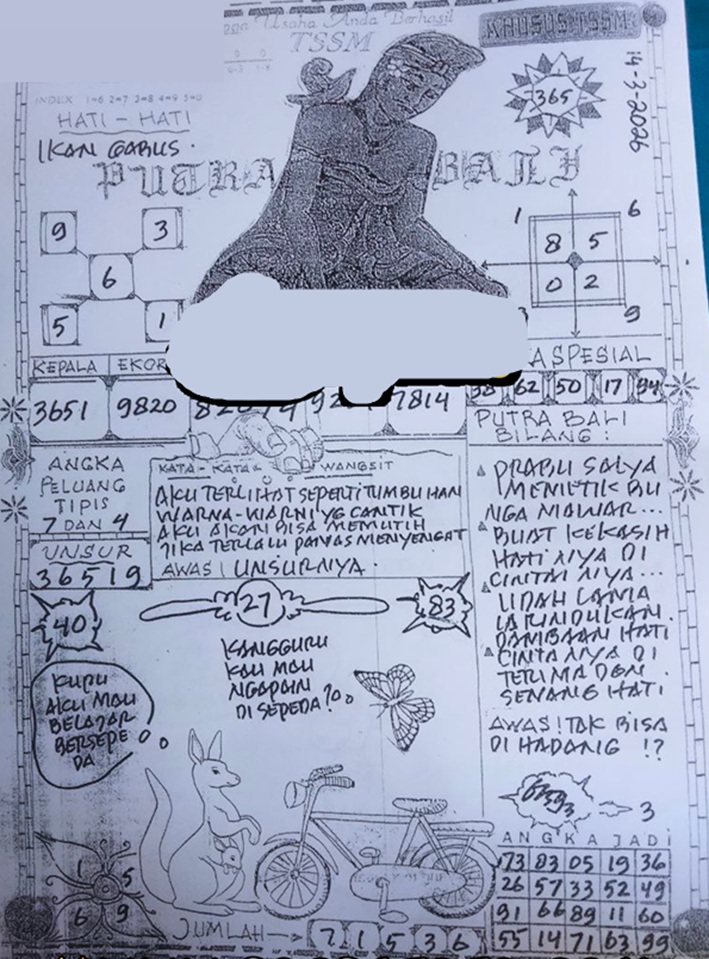 Usaha Anda Berhasil
TSSM
KHUSUS TSSM
14-3-2026
365
INDEX 1=6 2=7 3=8 4=9 5=0
HATI - HATI
IKAN GABUS.
PUTRA BALI
9 3
6
5 1
1 6
8 5
0 2
9
KEPALA EKOR
A SPESIAL
3651 9820 7814
38 62 50 17 94
PUTRA BALI
BILANG:
ANGKA
PELUANG
TIPIS
7 DAN 4
UNSUR
36519
KATA-KATA WANGSIT
AKU TERLIHAT SEPERTI TUMBUHAN
WARNA-WARNI YG CANTIK
AKU AKAN BISA MEMUTIH
JIKA TERLALU PANAS MENYENGAT
AWAS! UNSURNYA.
PRABU SALYA
MEMETIK BU
NGA MAWAR...
BUAT KEKASIH
HATI NYA DI
CINTAI NYA...
UDAH LAMA
IA RINDUKAN.
DAMBAAN HATI
CINTA NYA DI
TERIMA DGN
SENANG HATI
AWAS! TAK BISA
DI HADANG !?
40
27
83
KUPU
AKU MAU
BELAJAR
BERSEPE
DA
KANGGURU
KAU MAU
NGAPAIN
DI SEPEDA?
3
ANGKA JADI
73 83 05 19 36
26 57 33 52 49
91 66 89 11 60
55 14 71 63 99
1 5
6 9
JUMLAH → 7 1 5 3 6